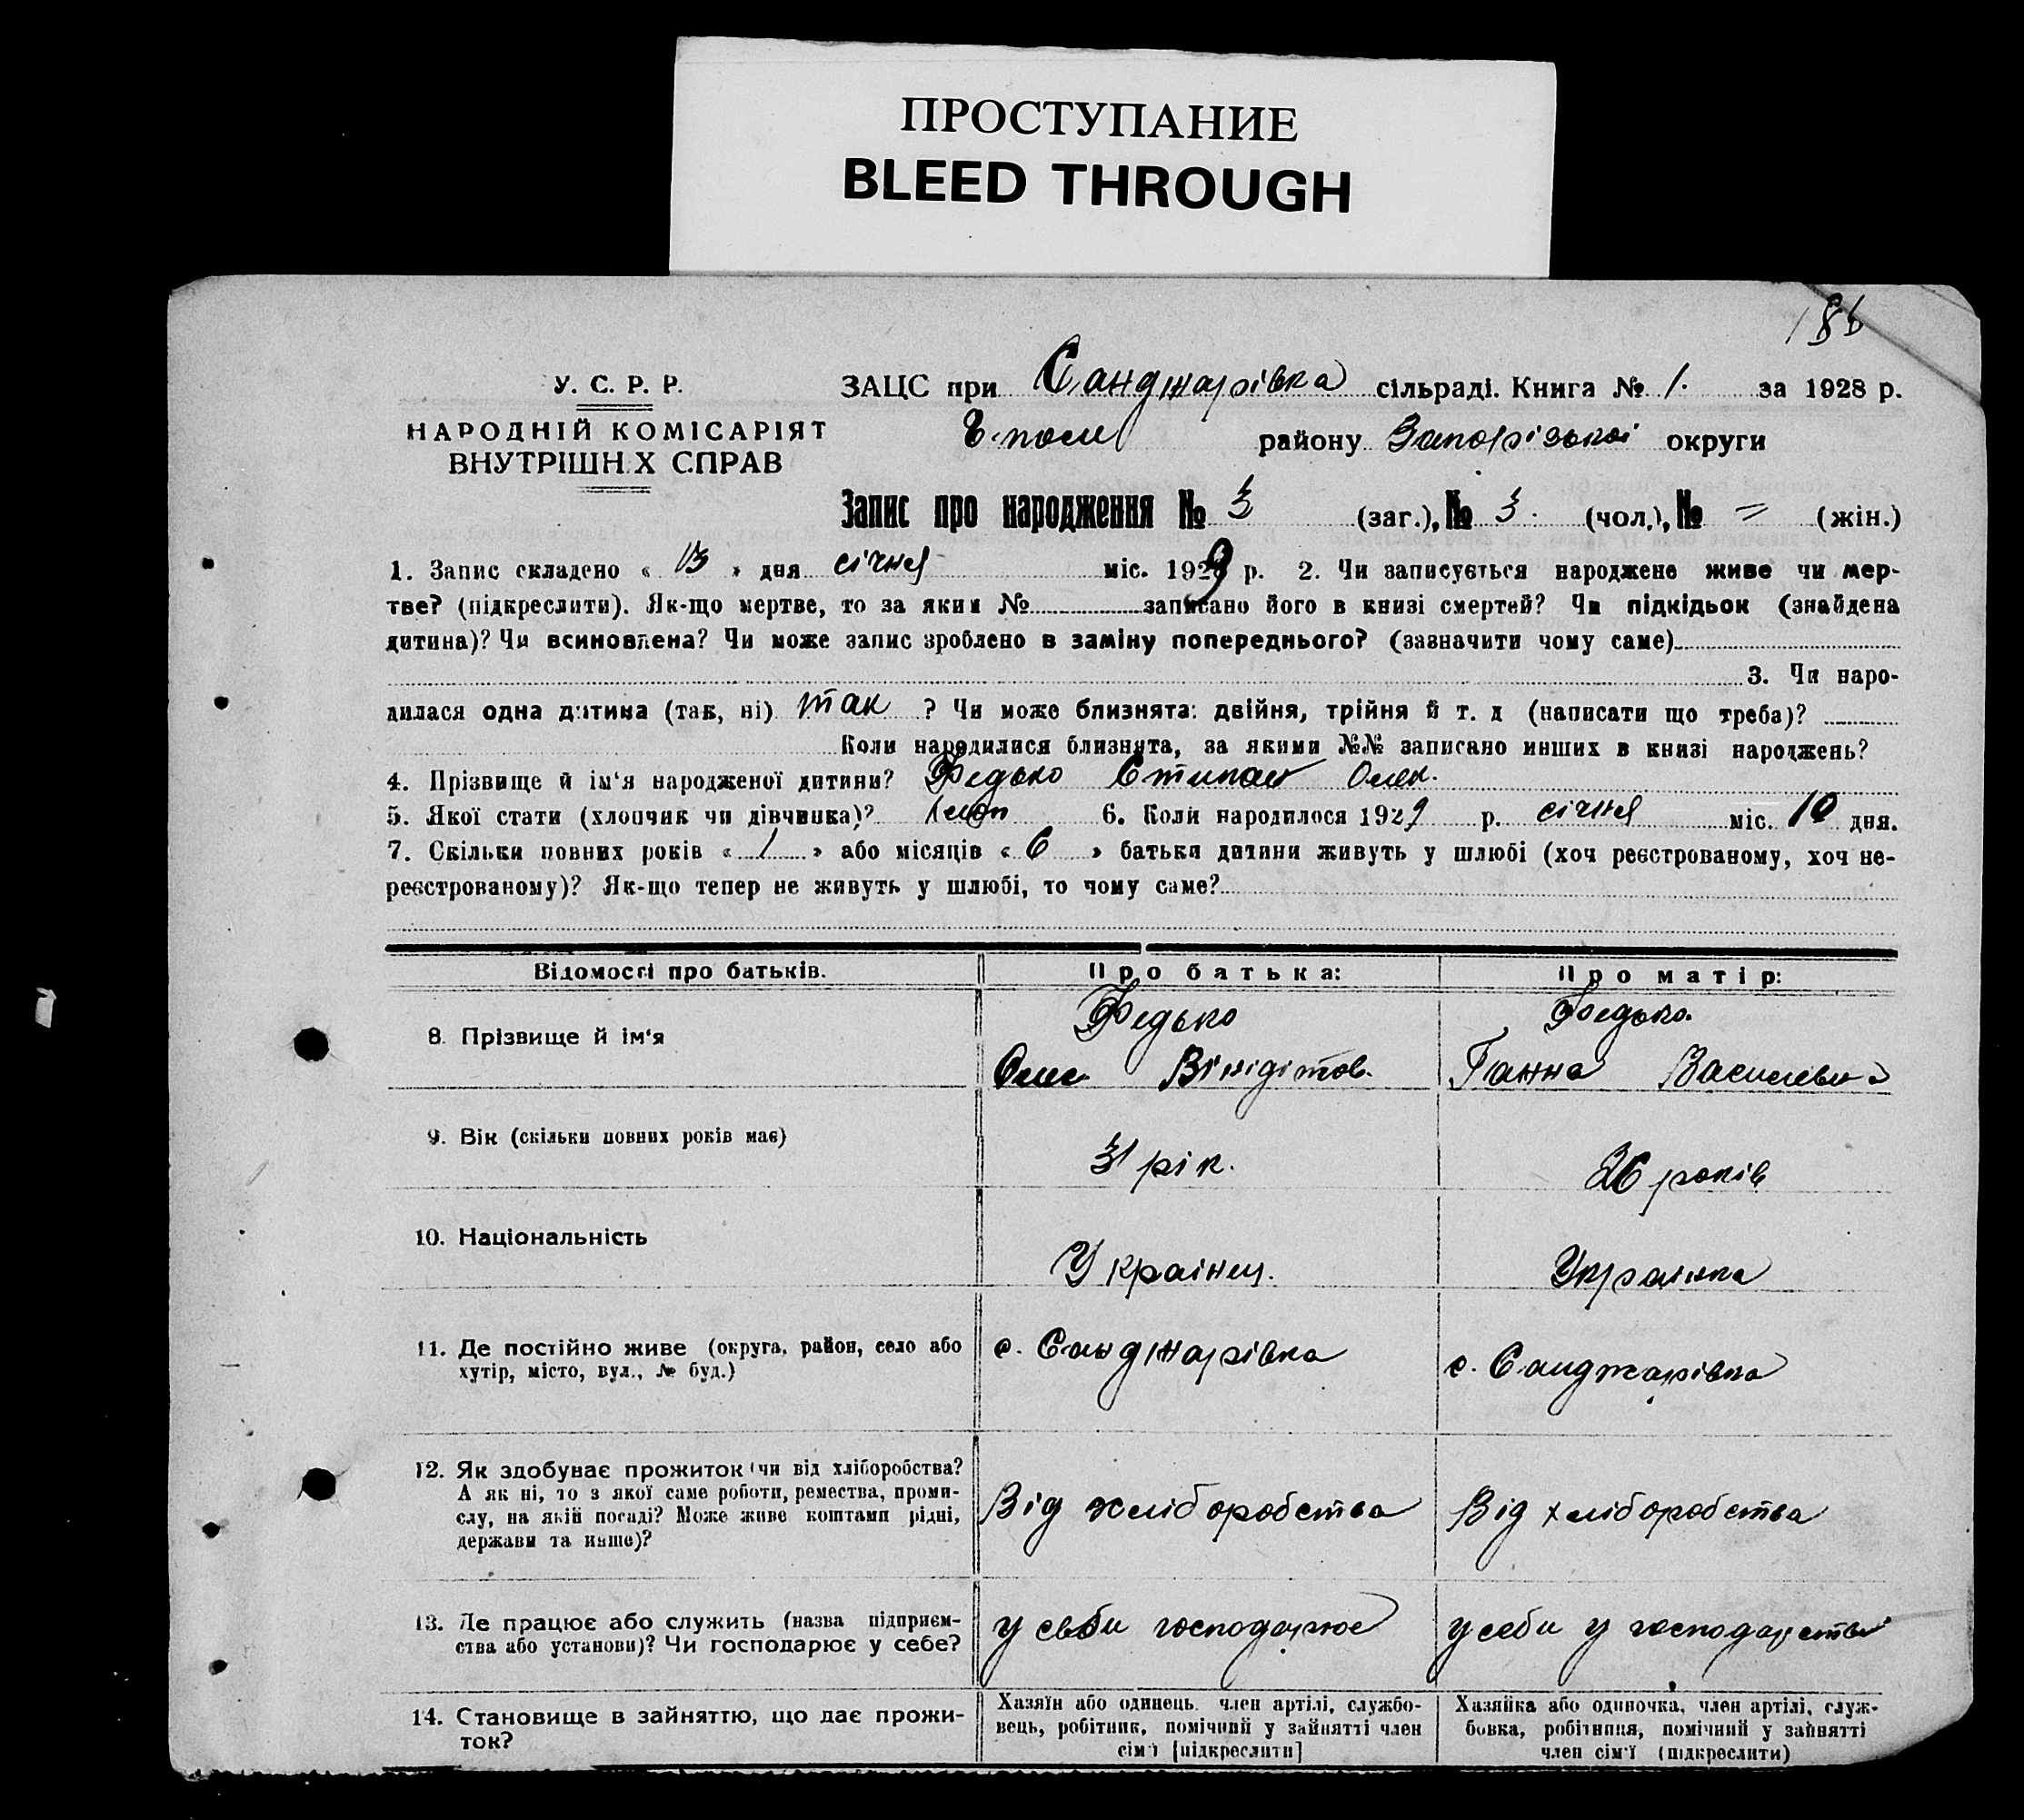 ПРОСТУПАНИЕ
BLEED THROUGH
У. С. Р. Р.
НАРОДНІЙ КОМІСАРІЯТ
ВНУТРІШН.Х СПРАВ
ЗАЦС при Санджарівка сільраді. Книга № 1. за 1928 р.
району Запорізької округи
Запис про народження № 3 (заг.), № 3. (чол.), № = (жін.)
1. Запис складено « 13 » дня січня міс. 1929 р. 2. Чи записується народжене живе чи мер-
тве? (підкреслити). Як-що мертве, то за яким № записано його в книзі смертей? Чи підкідьок (знайдена
дитина)? Чи всиновлена? Чи може запис зроблено в заміну попереднього? (зазначити чому саме)
3. Чи наро-
дилася одна дитина (так, ні) так ? Чи може близнята: двійня, трійня й т. д (написати що треба)?
Коли народилися близнята, за якими №№ записано инших в книзі народжень?
4. Прізвище й ім‘я народженої дитини? Федько Степан Олек.
5. Якої стати (хлопчик чи дівчинка)? 6. Коли народилося 1929 р. січня міс. 10 дня.
7. Скільки повних років « 1 » або місяців « 6 » батьки дитини живуть у шлюбі (хоч реєстрованому, хоч не-
реєстрованому)? Як-що тепер не живуть у шлюбі, то чому саме?
Відомості про батьків. Про батька: Про матір:
8. Прізвище й ім‘я Федько Федько
Вінідітов. Ганна Васильевна
9. Вік (скільки повних років має) 31 рік. 26 років
10. Національність Українец. Українка
11. Де постійно живе (округа, район, село або с. Санджарівка с. Санджарівка
хутір, місто, вул., № буд.)
12. Як здобуває прожиток (чи від хліборобства? Від хліборобства Від хліборобства
А як ні, то з якої саме роботи, ремества, проми-
слу, на якій посаді? Може живе коштами рідні,
держави та инше)?
13. Де працює або служить (назва підприєм- у себи господарює у себи у господарстві
ства або установи)? Чи господарює у себе?
14. Становище в зайняттю, що дає прожи-
ток?
Хазяїн або одинець, член артілі, службо-
вець, робітник, помічний у зайнятті член
сім‘ї [підкреслити]
Хазяйка або одиночка, член артілі, служ-
бовка, робітниця, помічний у зайнятті
член сім‘ї (підкреслити)